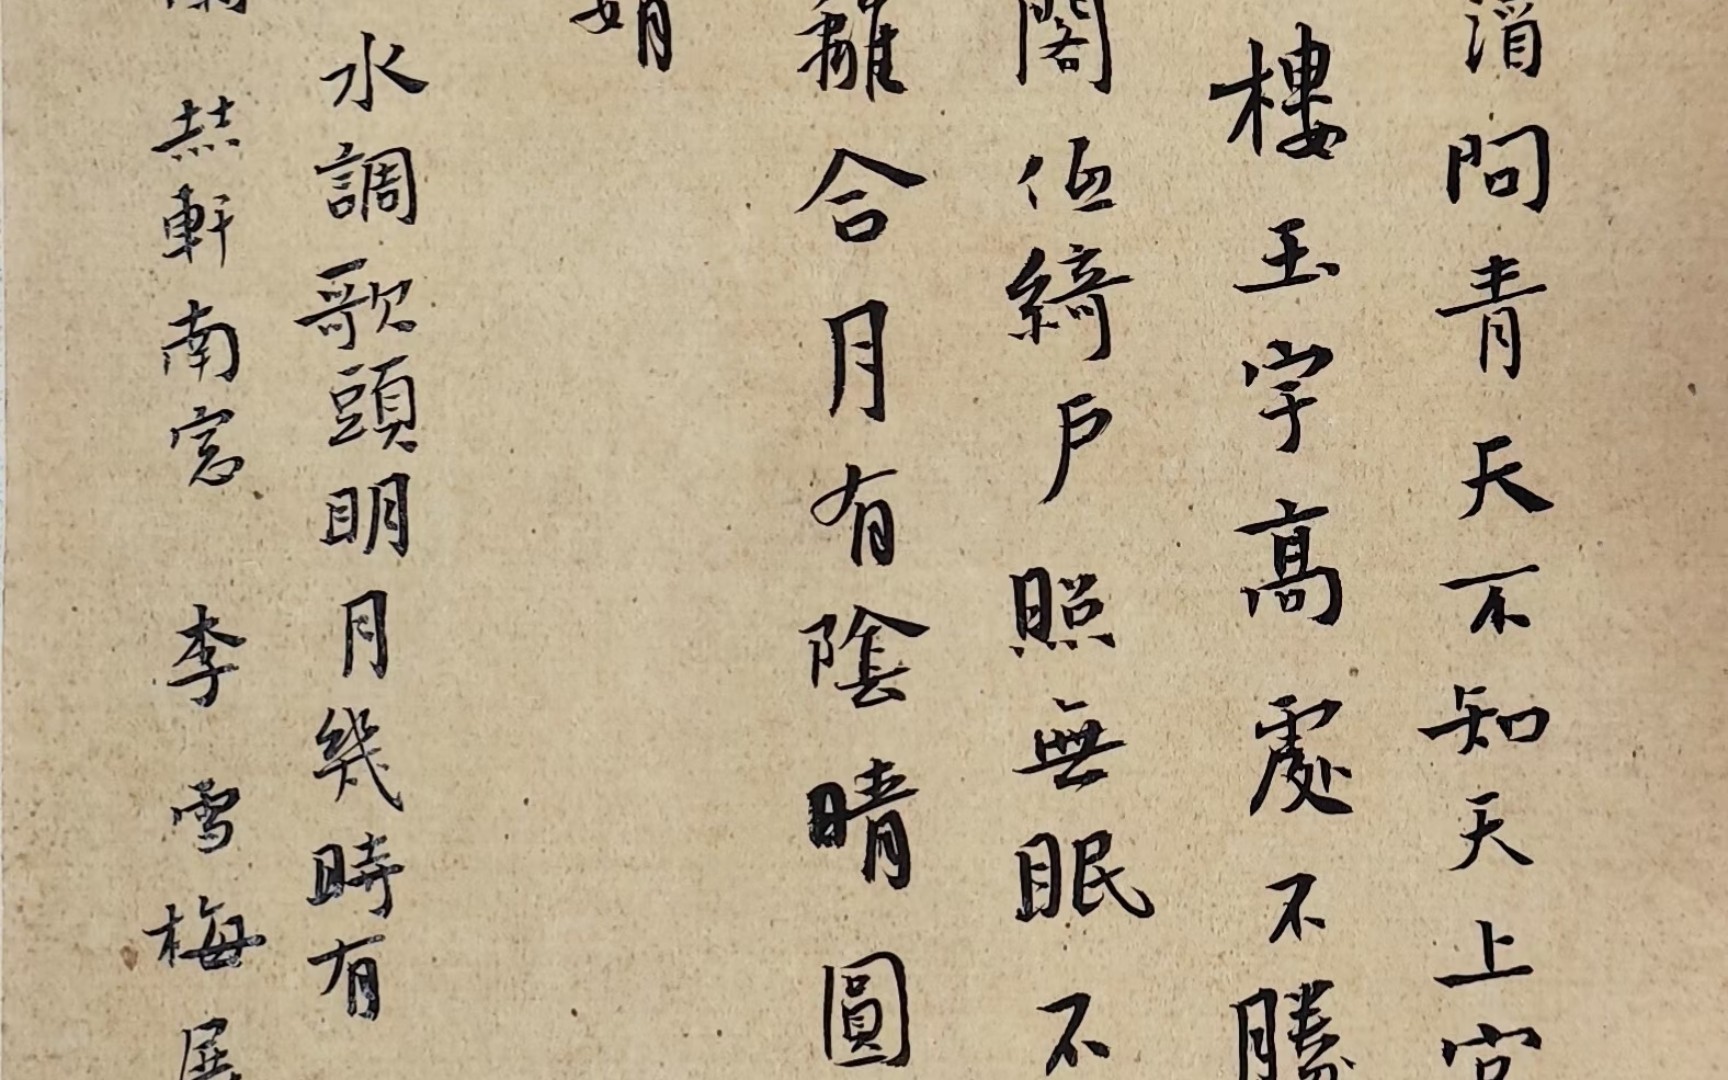 問青天不知天上宮
樓玉宇高處不勝
閣低綺戶照無眠不
離合月有陰晴圓
娟
水調歌頭明月幾時有
軒南窓 李雪梅展